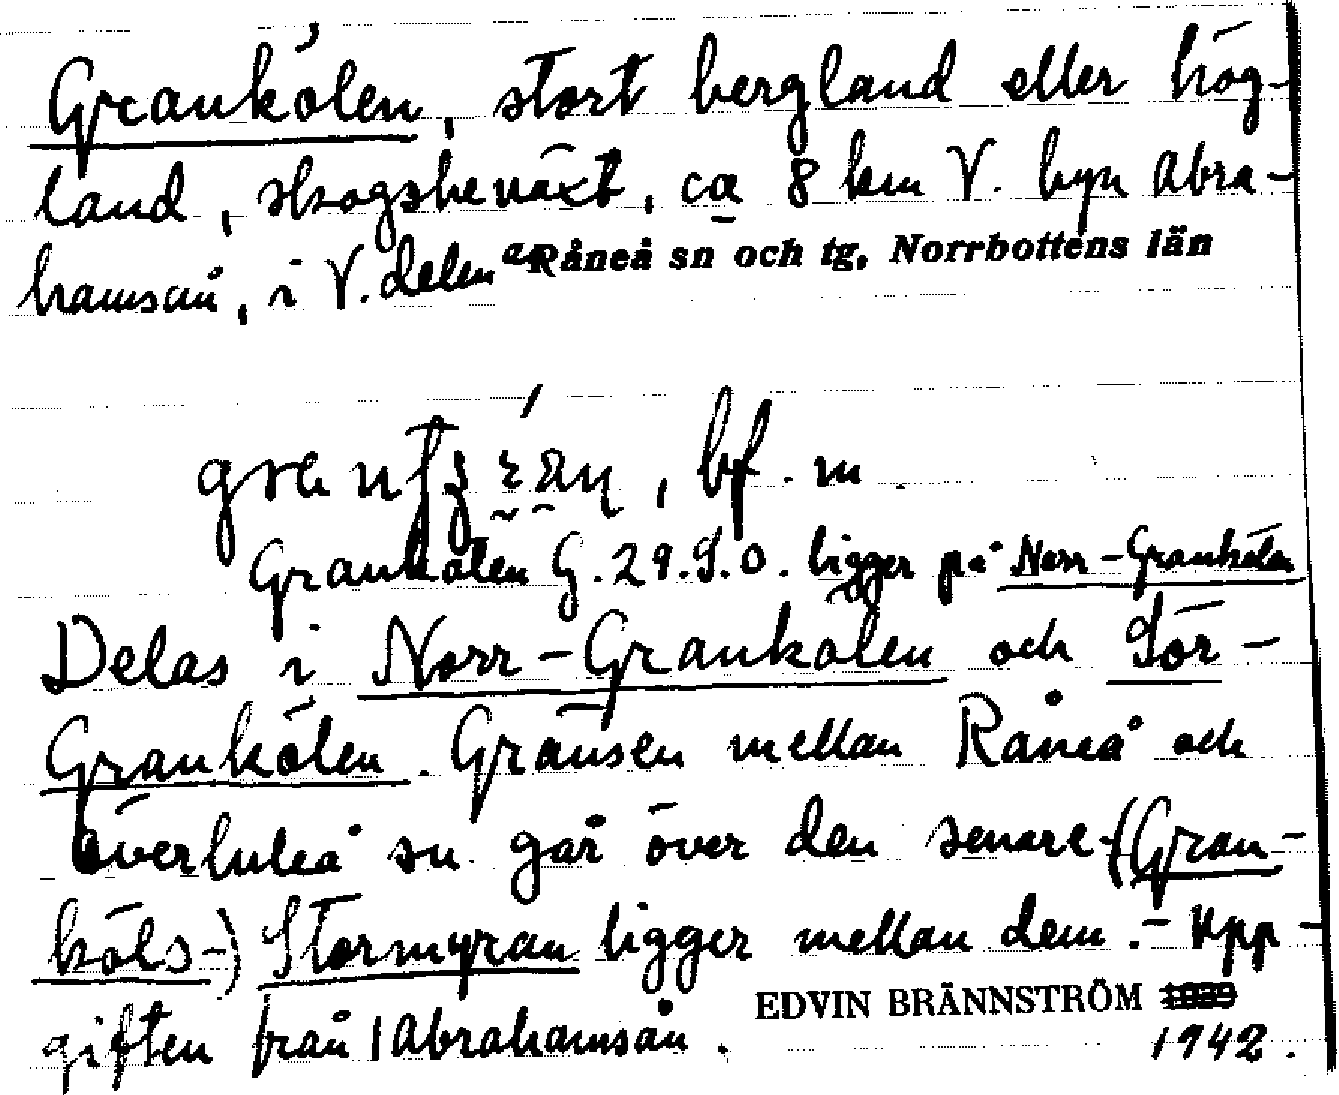 Grankölen, stort bergland eller hög-
land, skogsbeväxt, ca 8 km V. byn Abra-
hamsån, i V. delen av Råneå sn och tg, Norrbottens län
bf. m.
Grankölen G. 29.S.O. ligger på Norr-Grankölen
Delas i Norr-Grankölen och Sör-
Grankölen. Gränsen mellan Råneå och
Överluleå sn. går över den senare. (Gran-
köls-) Stormyran ligger mellan dem. - Upp-
giften från Abrahamsån.
EDVIN BRÄNNSTRÖM 1939
1942.